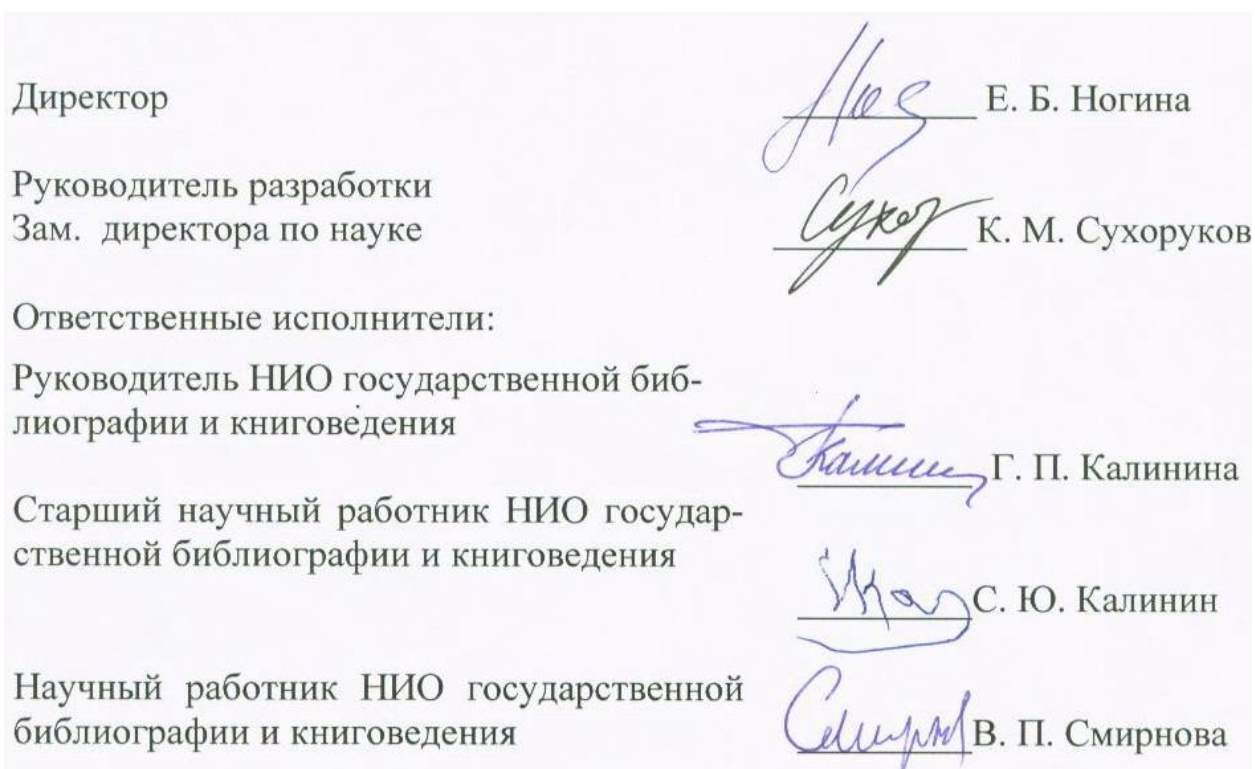 Директор
Е. Б. Ногина
Руководитель разработки
Зам. директора по науке
К. М. Сухоруков
Ответственные исполнители:
Руководитель НИО государственной биб-
лиографии и книговедения
Г. П. Калинина
Старший научный работник НИО государ-
ственной библиографии и книговедения
С. Ю. Калинин
Научный работник НИО государственной
библиографии и книговедения
В. П. Смирнова